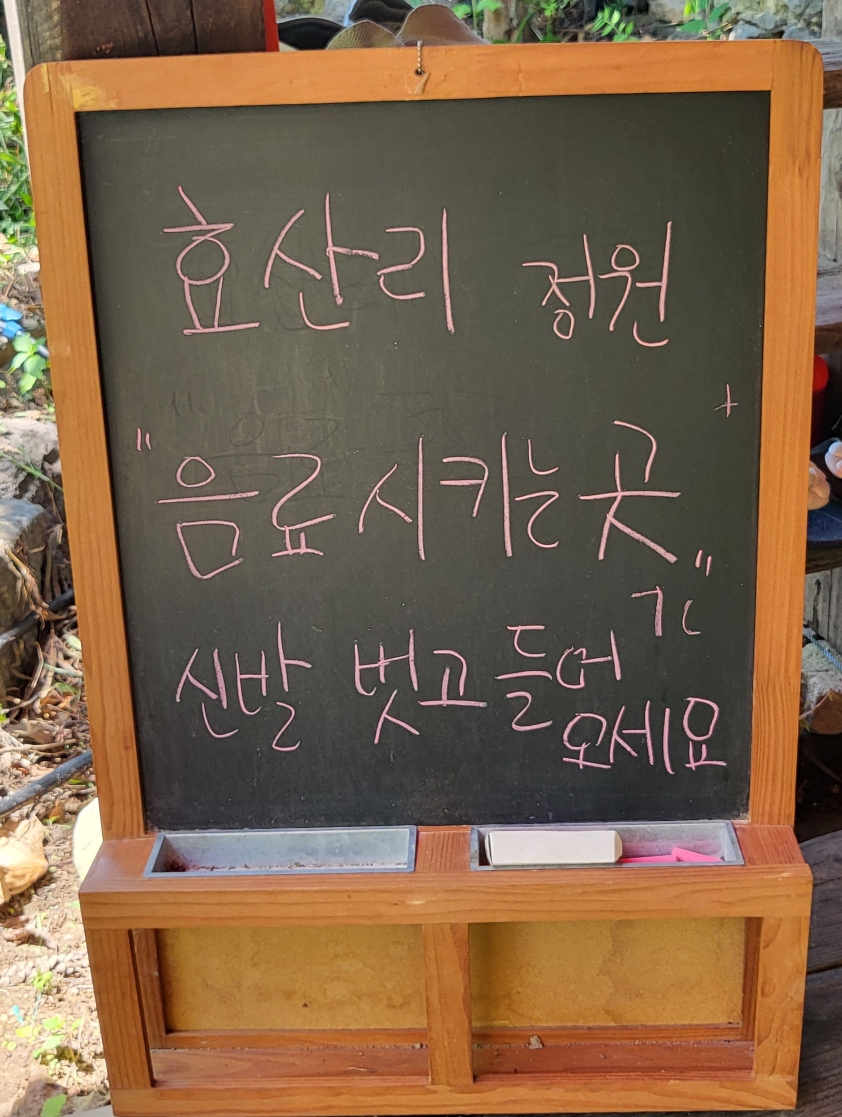 효산리 정원
"음료 시키는 곳"
신발 벗고 들어
오세요